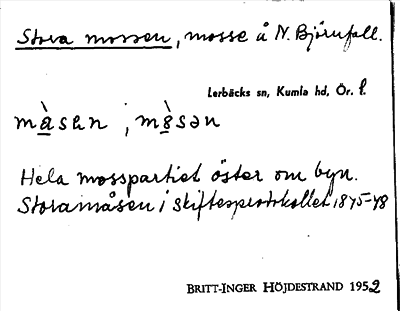 Stora mossen, mosse å N. Björnfall.
Lerbäcks sn, Kumla hd, Ör. l.
màsen ; mòsən
Hela mosspartiet öster om byn.
Storamåsen i skiftesprotokollet 1875-78
BRITT-INGER HÖJDESTRAND 1952